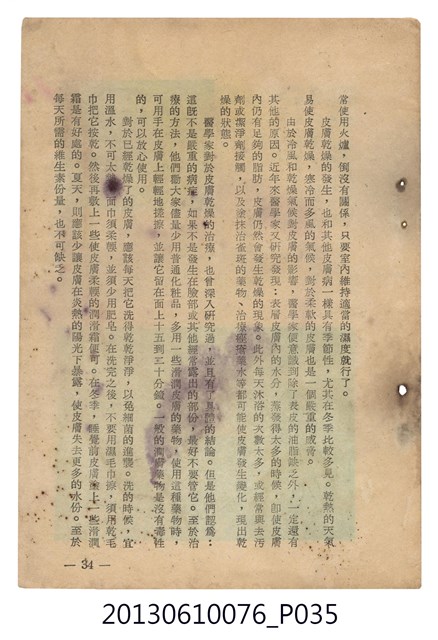 常使用火爐，倒沒有關係，只要室內維持適當的濕度就行了。
皮膚乾燥的發生，也和其他皮膚病一樣具有季節性，尤其在冬季比較多見。乾熱的天氣
易使皮膚乾燥，寒冷而多風的氣候，對於柔軟的皮膚也是一個嚴重的威脅。
由於冷風和乾燥氣候對皮膚的影響，醫學家便意識到除了表皮的油脂缺乏外，一定還有
其他的原因。近年來醫學家又研究發現：表層皮膚內的水分，蒸發得太多的時候，即使皮膚
內仍有足夠的脂肪，皮膚仍然會發生乾燥的現象。此外每天沐浴的次數太多，或經常與去污
劑或潔淨劑接觸，以及塗抹治雀斑的藥物、治療痤瘡藥水等都可能使皮膚發生變化，現出乾
燥的狀態。
醫學家對於皮膚乾燥的治療，也曾深入研究過，並且有了具體的結論。但是他們認為：
這旣不是嚴重的病症，如果不是發生在臉部或其他經常露出的部份，最好不要管它。至於治
療的方法，他們勸大家儘量少用普通化粧品，多用一些滑潤皮膚的藥物，使用這種藥物時，
可用手在皮膚上輕輕地搓擦，並讓它留在面上十五到三十分鐘。一般的潤膚藥物是沒有毒性
的，可以放心使用。
對於已經乾燥了的皮膚，應該每天把它洗得乾乾淨淨，以免細菌的進襲。洗的時候，宜
用溫水，不可太 面巾須柔輕，並須少用肥皂。在洗完之後，不要用濕毛巾擦，須用乾毛
巾把它按乾。然後再敷上一些使皮膚柔輕的潤滑霜便可。在冬季，睡覺前皮膚 上一些滑潤
霜是有好處的。夏天，則應該少讓皮膚在炎熱的陽光下暴露，使皮膚失去更多的水份。至於
每天所需的維生素份量，也不可缺乏。
— 34 —
20130610076_P035